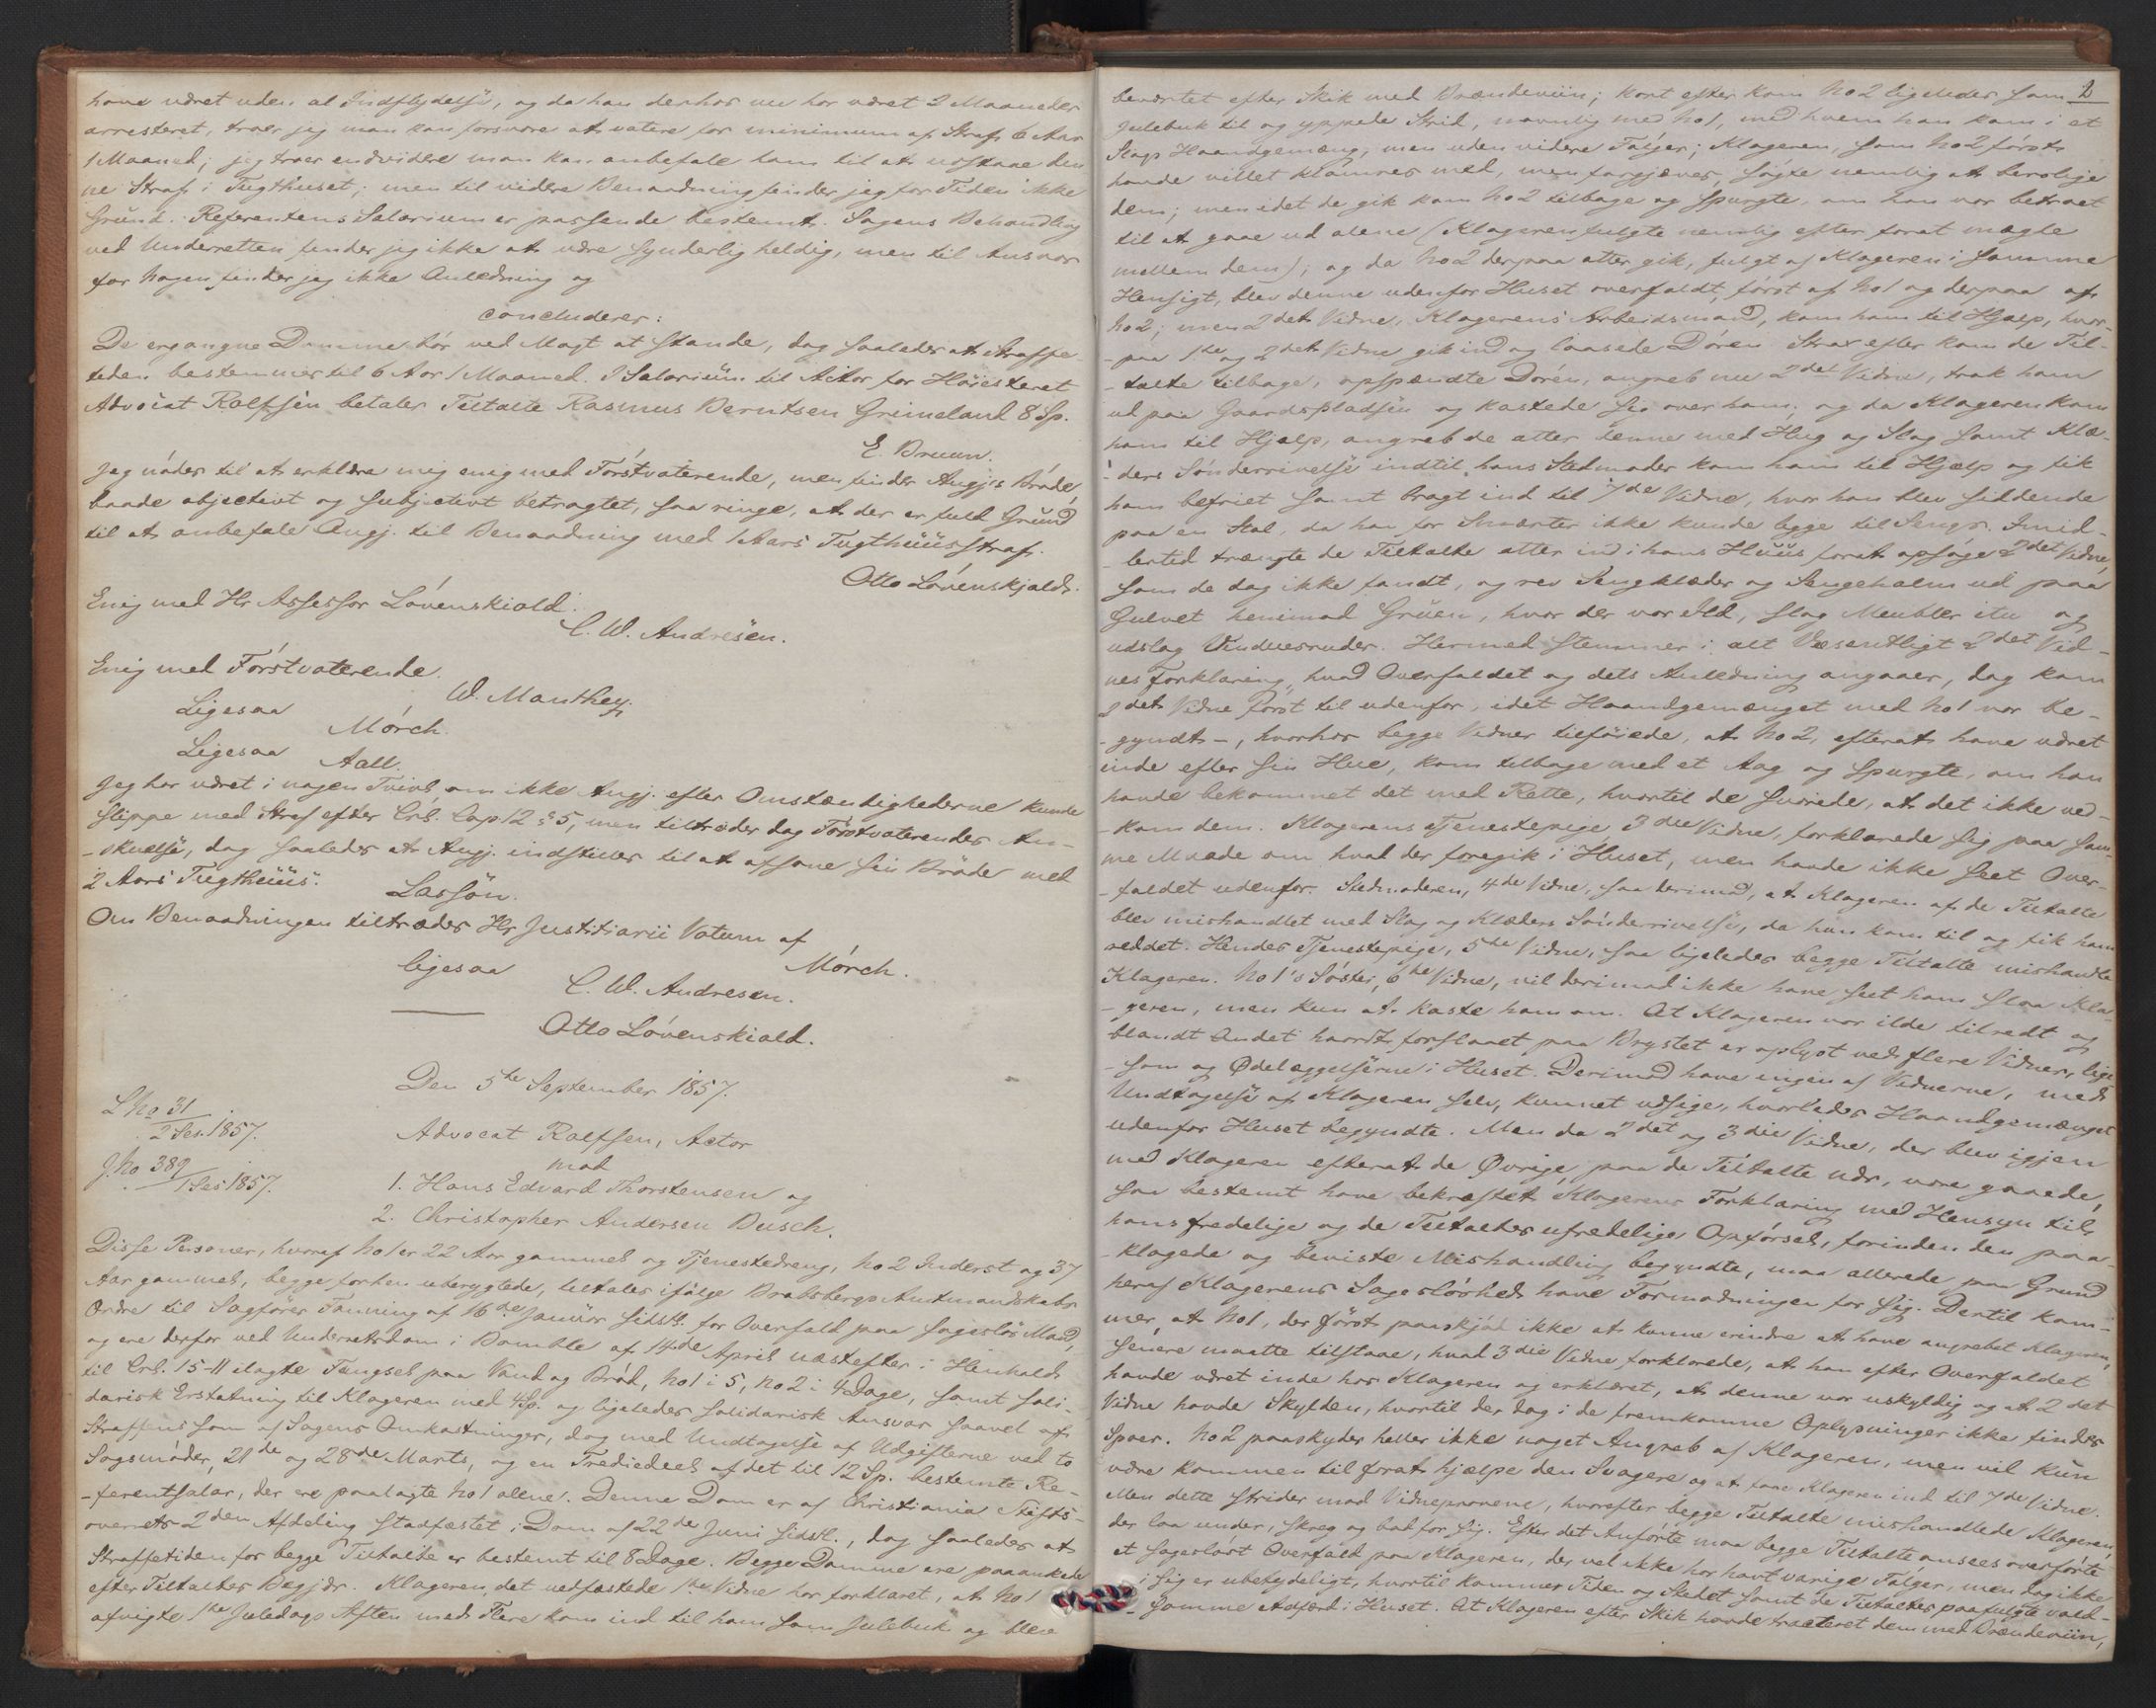 have været uden al Indflydelse, og da han derhos nu har været 2 Maaneder
arresteret, troer jeg man kan forsvare at votere for minimum af Straf 6 Aar
1 Maaned; jeg troer endvidere man kan anbefale ham til at udstaae den
ne Straf i Tugthuset; men til videre Benaadning finder jeg for Tiden ikke
Grund. Referentens Salarium er passende bestemt. Sagens Behandling
ved Underretten finder jeg ikke at være synderlig heldig, men til Ansvar
for Nogen finder jeg ikke Anledning og
concluderer:
De ergangne Domme bør ved Magt at stande, dog saaledes at Straffe-
tiden bestemmes til 6 Aar 1 Maaned. I Salarium til Actor for Høiesteret
Advocat Rolfsen betaler Tiltalte Rasmus Berntsen Grimeland 8 Sp.
E. Bruun.
Jeg nødes til at erklære mig enig med Førstvoterende, men finder Angj.s Brøde,
baade objectivt og subjectivt betragtet, saa ringe, at der er fuld Grund
til at anbefale Angj. til Benaadning med 1 Aars Tugthuusstraf.
Otto Løvenskjold.
Enig med Hr Assessor Løvenskiold.
C. W. Andresen.
Enig med Førstvoterende.
W. Manthey.
Ligesaa
Mørch.
Ligesaa
Aall.
Jeg har været i nogen Tvivl om ikke Angj. efter Omstændighederne kunde
slippe med Straf efter Crl. Cap 12 § 5, men tiltræder dog Førstvoterendes An-
-skuelse, dog saaledes at Angj. indstilles til at afsone sin Brøde med
2 Aars Tugthuus.
Lassøn.
Om Benaadningen tiltrædes Hr Justitiarii Votum af
Mørch.
ligesaa
C. W. Andresen.
Otto Løvenskiold.
Den 5te September 1857.
L No 31
2 Ses. 1857.
J. No 389
1 Ses 1857.
Advocat Rolfsen, Actor
mod
1. Hans Edvard Thorstensen og
2. Christopher Andersen Busch.
Disse Personer, hvoraf No 1 er 22 Aar gammel og Tjenestedreng, No 2 Inderst og 37
Aar gammel, begge forhen uberygtede, tiltales ifølge Bratsbergs Amtmandskabs
Ordre til Sagfører Fanning af 16de Januar sidstl. for Overfald paa sagesløs Mand,
og ere derfor ved Underretsdom i Bamble af 14de April næstefter i Henhold
til Crl. 15-11 ilagte Fængsel paa Vand og Brød, No 1 i 5, No 2 i 4 Dage, samt soli-
darisk Erstatning til Klageren med 4 Sp. og ligeledes solidarisk Ansvar saavel af
Straffens som af Sagens Omkostninger, dog med Undtagelse af Udgifterne ved to
Sagsmøder, 21de og 28de Marts, og en Trediedeel af det til 12 Sp. bestemte Re-
-ferentsalar, der ere paalagte No 1 alene. Denne Dom er af Christiania Stifts-
overrets 2den Afdeling stadfæstet i Dom af 22de Juni sidstl., dog saaledes at
Straffetiden for begge Tiltalte er bestemt til 8 Dage. Begge Domme ere paaankede
efter Tiltaltes Begjær. Klageren, det vedfæstede 1ste Vidne har forklaret, at No 1
afvigte 1ste Juledags Aften med Flere kom ind til ham som Julebuk og blev
2
beværtet efter Skik med Brændeviin; kort efter kom No 2 ligeledes som
Julebuk til og yppede Strid, navnlig med No 1, med hvem han kom i et
Slags Haandgemæng, men uden videre Følger; Klageren, som No 2 først
havde villet klamres med, men forgjæves, søgte nemlig at berolige
dem; men idet de gik kom No 2 tilbage og spurgte, om han var betroet
til at gaae ud alene (Klageren fulgte nemlig efter forat mægle
mellem dem); og da No 2 derpaa atter gik, fulgt af Klageren i samme
Hensigt, blev denne udenfor Huset overfaldt, først af No 1 og derpaa af
No 2; men 2det Vidne, Klagerens Arbeidsmand, kom ham til Hjælp, hvor-
-paa 1ste og 2det Vidne gik ind og laasede Døren. Strax efter kom de Til-
-talte tilbage, opspændte Døren, angreb nu 2det Vidne, trak ham
ud paa Gaardspladsen og kastede sig over ham; og da Klageren kom
ham til Hjælp, angreb de atter denne med Hug og Slag samt Klæ-
-ders Sønderrivelse indtil hans Stedmoder kom ham til Hjælp og fik
ham befriet samt bragt ind til 7de Vidne, hvor han blev siddende
paa en Stol, da han for Smerter ikke kunde ligge til Sengs. Imid-
-lertid trængte de Tiltalte atter ind i hans Huus forat opsøge 2det Vidne,
som de dog ikke fandt, og rev Sengklæder og Sengehalm ud paa
Gulvet henimod Gruen, hvor der var Ild, slog Meubler itu og
udslog Vinduesruder. Hermed stemmer i alt Væsentligt 2det Vid-
nes Forklaring, hvad Overfaldet og dets Anledning angaaer, dog kom
2det Vidne først til udenfor, idet Haandgemænget med No 1 var be-
-gyndt -, hvorhos begge Vidner tilføiede, at No 2, efterat have været
inde efter sin Hue, kom tilbage med et Aag og spurgte, om han
havde bekommet det med Rette, hvortil de svarede, at det ikke ved-
-kom dem. Klagerens Tjenestepige 3die Vidne, forklarede sig paa sam-
me Maade om hvad der foregik i Huset, men havde ikke seet Over-
-faldet udenfor. Stedmoderen, 4de Vidne, saa derimod, at Klageren af de Tiltalte
blev mishandlet med Slag og Klæders Sønderrivelse, da hun kom til og fik ham
reddet. Hendes Tjenestepige, 5te Vidne, saa ligeledes begge Tiltalte mishandle
Klageren. No 1's Søster, 6te Vidne, vil derimod ikke have seet ham slaa Kla-
-geren, men kun at kaste ham om. At Klageren var ilde tilredt og
blandt Andet haardt forslaaet paa Brystet er oplyst ved flere Vidner, lige-
-som og Ødelæggelserne i Huset. Derimod have ingen af Vidnerne, med
Undtagelse af Klageren selv, kunnet udsige, hvorledes Haandgemænget
udenfor Huset begyndte. Men da 2det og 3die Vidne, der blev igjen
med Klageren efterat de Øvrige, paa de Tiltalte nær, vare gaaede,
saa bestemt have bekræftet Klagerens Forklaring med Hensyn til
hans fredelige og de Tiltaltes ufredelige Opførsel, forinden den paa-
-klagede og beviste Mishandling begyndte, maa allerede paa Grund
heraf Klagerens Sagesløshed have Formodningen for sig. Dertil kom-
mer, at No 1, der først paaskjød ikke at kunne erindre at have angrebet Klageren,
senere maatte tilstaae, hvad 3die Vidne forklarede, at han efter Overfaldet
havde været inde hos Klageren og erklæret, at denne var uskyldig og at 2det
Vidne havde Skylden, hvortil der dog i de fremkomne Oplysninger ikke findes
Spoer. No 2 paaskyder heller ikke noget Angreb af Klageren, men vil kun
være kommen til forat hjælpe den Svagere og at faae Klageren ind til 7de Vidne.
Men dette strider mod Vidneprovene, hvorefter begge Tiltalte mishandlede Klageren,
der laa under, skreg og bad for sig. Efter det Anførte maa begge Tiltalte ansees overførte
et sagesløst Overfald paa Klageren, der vel ikke har havt varige Følger, men dog ikke
i sig er ubetydeligt, hvortil kommer Tiden og Stedet samt de Tiltaltes paafulgte vold-
-somme Adfærd i Huset. At Klageren efter Skik havde tracteret dem med Brændeviin,